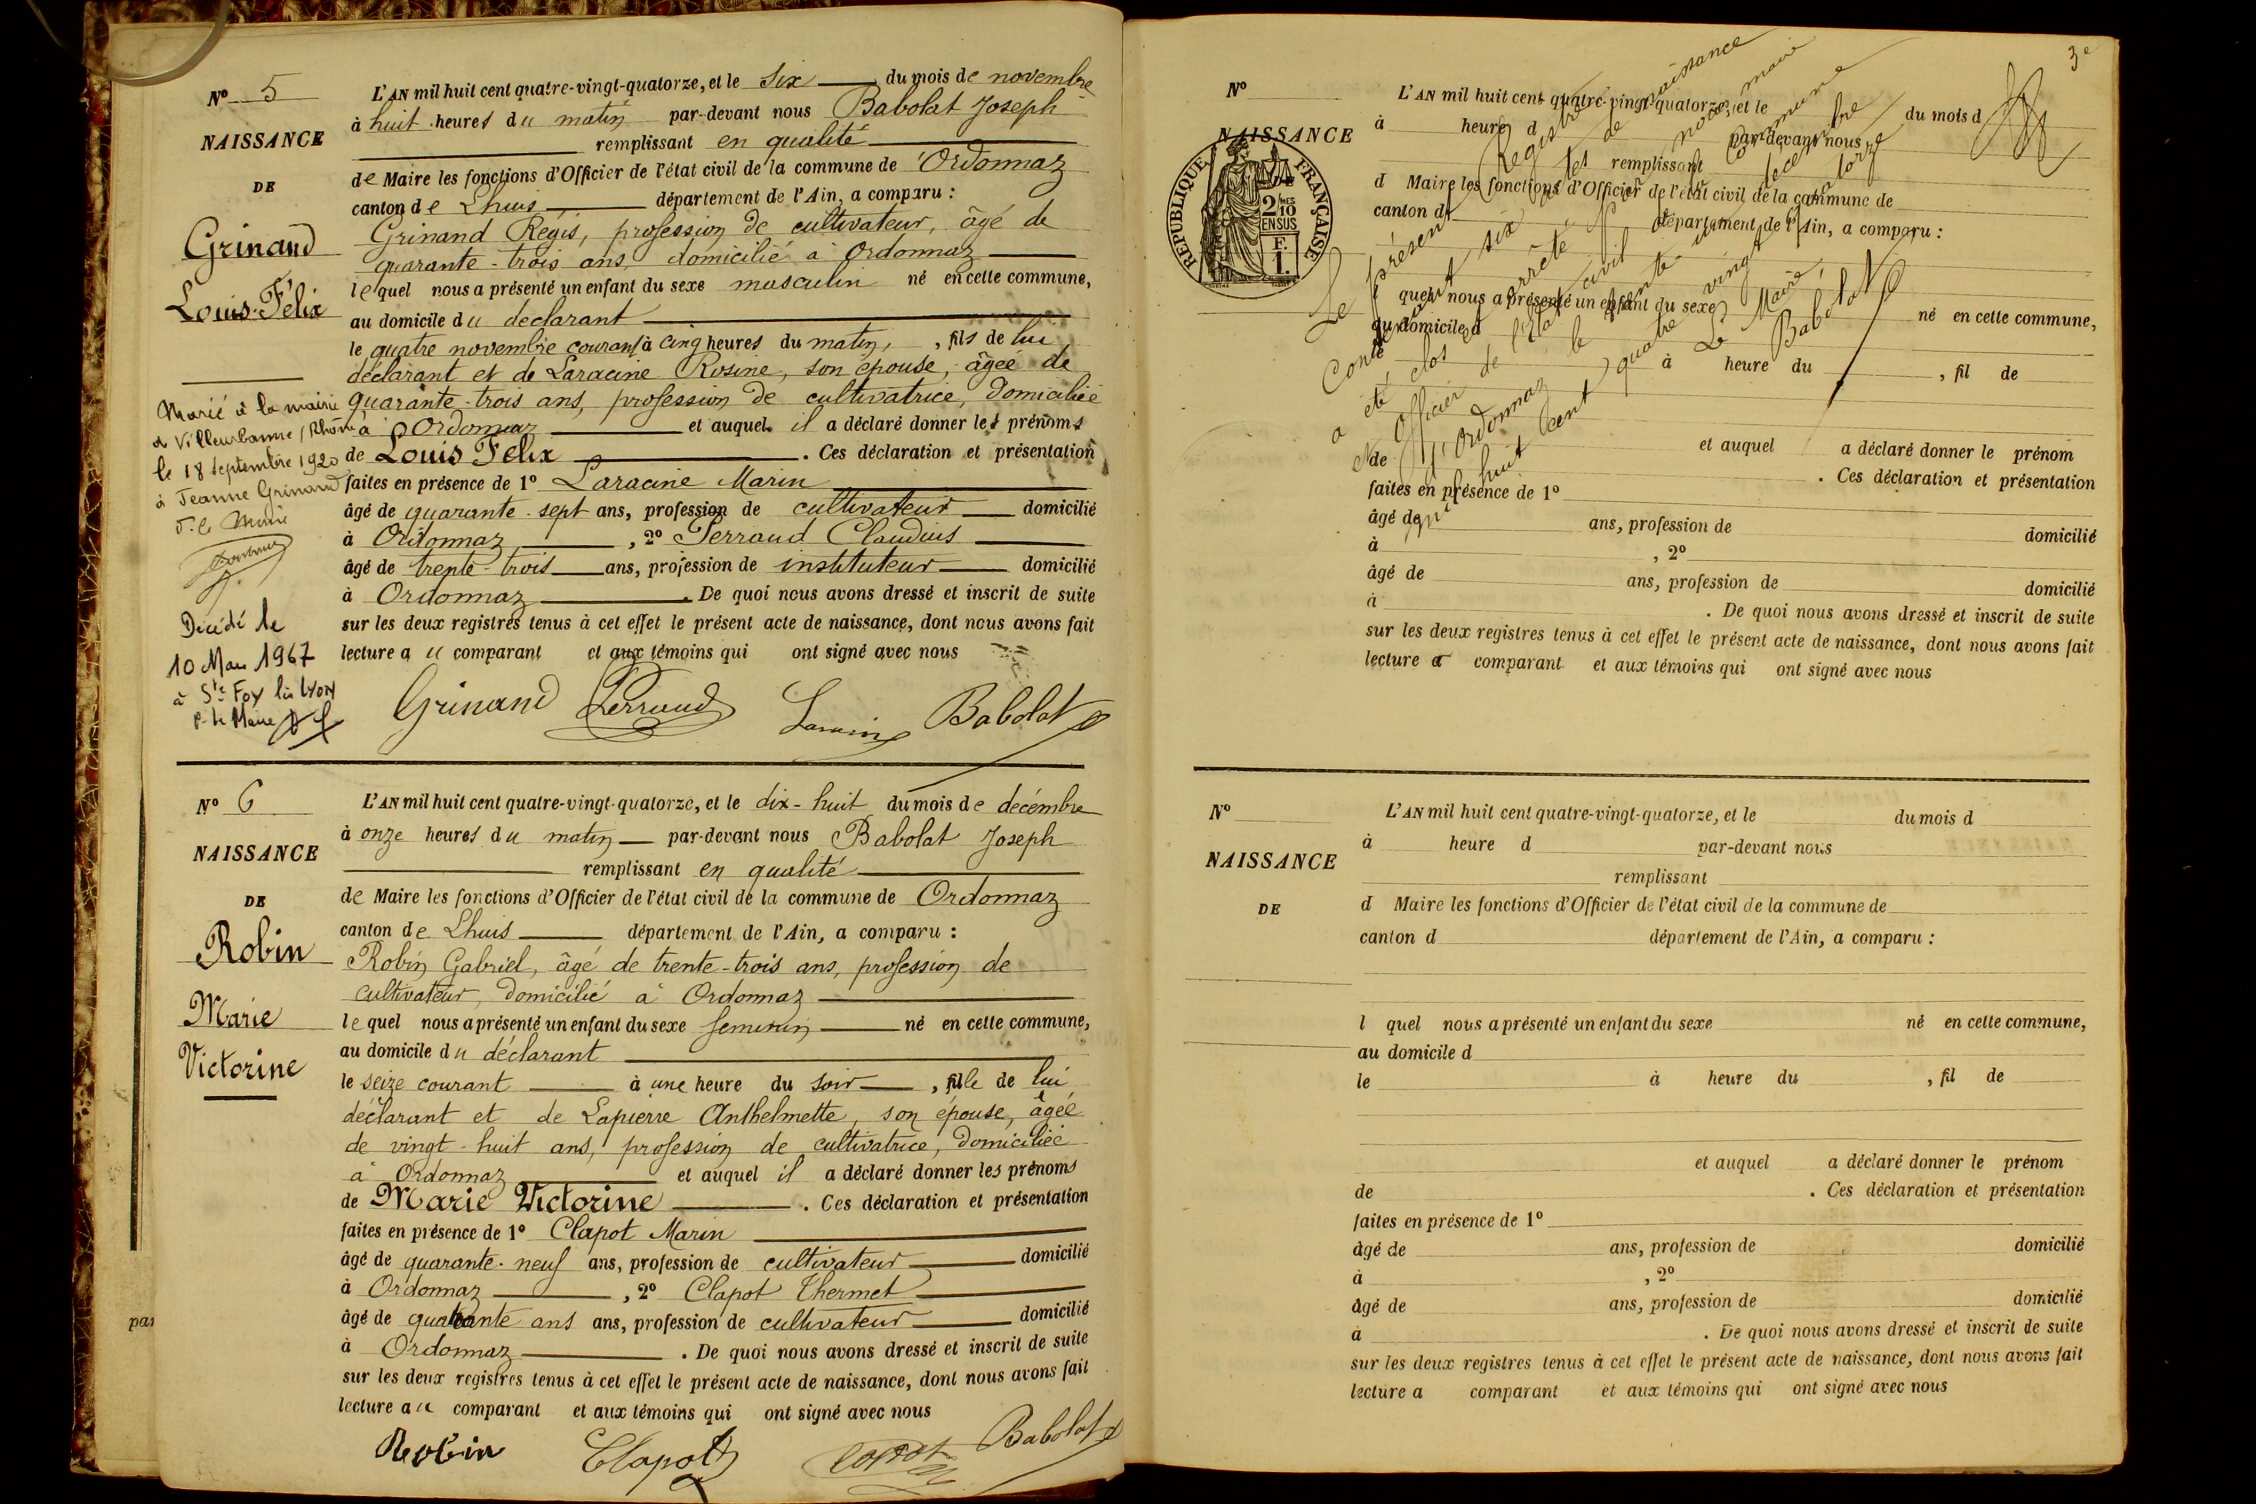 Nº 5
NAISSANCE
DE
Grinand
Louis-Félix
Marié à la mairie
de Villeurbanne (Rhône)
le 18 septembre 1920
à Jeanne Grinand
Décédé le
10 Mars 1967
à Ste Foy lès Lyon
P. le Maire
L'AN mil huit cent quatre-vingt-quatorze, et le six du mois de novembre
à huit heures du matin par-devant nous Babolat Joseph
remplissant en qualité
de Maire les fonctions d'Officier de l'état civil de la commune de Ordonnaz
canton de Lhuis département de l'Ain, a comparu :
Grinand Régis, profession de cultivateur, âgé de
quarante-trois ans, domicilié à Ordonnaz
lequel nous a présenté un enfant du sexe masculin né en cette commune,
au domicile du declarant
le quatre novembre courant à cinq heures du matin, , fils de lui
déclarant et de Laracine Rosine, son épouse, âgée de
quarante-trois ans, profession de cultivatrice, domiciliée
à Ordonnaz et auquel il a déclaré donner les prénoms
de Louis Félix . Ces déclaration et présentation
faites en présence de 1º Laracine Marin
âgé de quarante-sept ans, profession de cultivateur domicilié
à Ordonnaz , 2º Perraud Claudius
âgé de trente-trois ans, profession de instituteur domicilié
à Ordonnaz . De quoi nous avons dressé et inscrit de suite
sur les deux registres tenus à cet effet le présent acte de naissance, dont nous avons fait
lecture au comparant et aux témoins qui ont signé avec nous
Grinand Perraud Babolat
Nº 6
NAISSANCE
DE
Robin
Marie
Victorine
L'AN mil huit cent quatre-vingt-quatorze, et le dix-huit du mois de décembre
à onze heures du matin par-devant nous Babolat Joseph
remplissant en qualité
de Maire les fonctions d'Officier de l'état civil de la commune de Ordonnaz
canton de Lhuis département de l'Ain, a comparu :
Robin Gabriel, âgé de trente-trois ans, profession de
cultivateur, domicilié à Ordonnaz
lequel nous a présenté un enfant du sexe feminin né en cette commune,
au domicile du déclarant
le seize courant à une heure du soir , fille de lui
déclarant et de Lapierre Anthelmette, son épouse, âgée
de vingt-huit ans, profession de cultivatrice, domiciliée
à Ordonnaz et auquel il a déclaré donner les prénoms
de Marie Victorine . Ces déclaration et présentation
faites en présence de 1º Clapot Marin
âgé de quarante-neuf ans, profession de cultivateur domicilié
à Ordonnaz , 2º Clapot Thermet
âgé de quarante ans ans, profession de cultivateur domicilié
à Ordonnaz . De quoi nous avons dressé et inscrit de suite
sur les deux registres tenus à cet effet le présent acte de naissance, dont nous avons fait
lecture au comparant et aux témoins qui ont signé avec nous
Robin Clapot Clapot Babolat
par
3e
Nº
NAISSANCE
RÉPUBLIQUE FRANÇAISE
2/10 MES
EN SUS
F.
1.
L'AN mil huit cent quatre-vingt-quatorze, et le du mois d
à heure d par-devant nous
remplissant
d Maire les fonctions d'Officier de l'état civil de la commune de
canton d département de l'Ain, a comparu :
quel nous a présenté un enfant du sexe né en cette commune,
au domicile d
à heure du , fil de
et auquel a déclaré donner le prénom
de . Ces déclaration et présentation
faites en présence de 1º
âgé de ans, profession de domicilié
à , 2º
âgé de ans, profession de domicilié
à . De quoi nous avons dressé et inscrit de suite
sur les deux registres tenus à cet effet le présent acte de naissance, dont nous avons fait
lecture a comparant et aux témoins qui ont signé avec nous
Le présent Registre de naissance
Contenant six actes
a été clos et arrêté par nous, maire
et Officier de l'état civil de la Commune
d'Ordonnaz le trente-un décembre
mil huit cent quatre vingt quatorze
Le Maire,
Babolat
Nº
NAISSANCE
DE
L'AN mil huit cent quatre-vingt-quatorze, et le du mois d
à heure d par-devant nous
remplissant
d Maire les fonctions d'Officier de l'état civil de la commune de
canton d département de l'Ain, a comparu :
l quel nous a présenté un enfant du sexe né en cette commune,
au domicile d
le à heure du , fil de
et auquel a déclaré donner le prénom
de . Ces déclaration et présentation
faites en présence de 1º
âgé de ans, profession de domicilié
à , 2º
âgé de ans, profession de domicilié
à . De quoi nous avons dressé et inscrit de suite
sur les deux registres tenus à cet effet le présent acte de naissance, dont nous avons fait
lecture a comparant et aux témoins qui ont signé avec nous